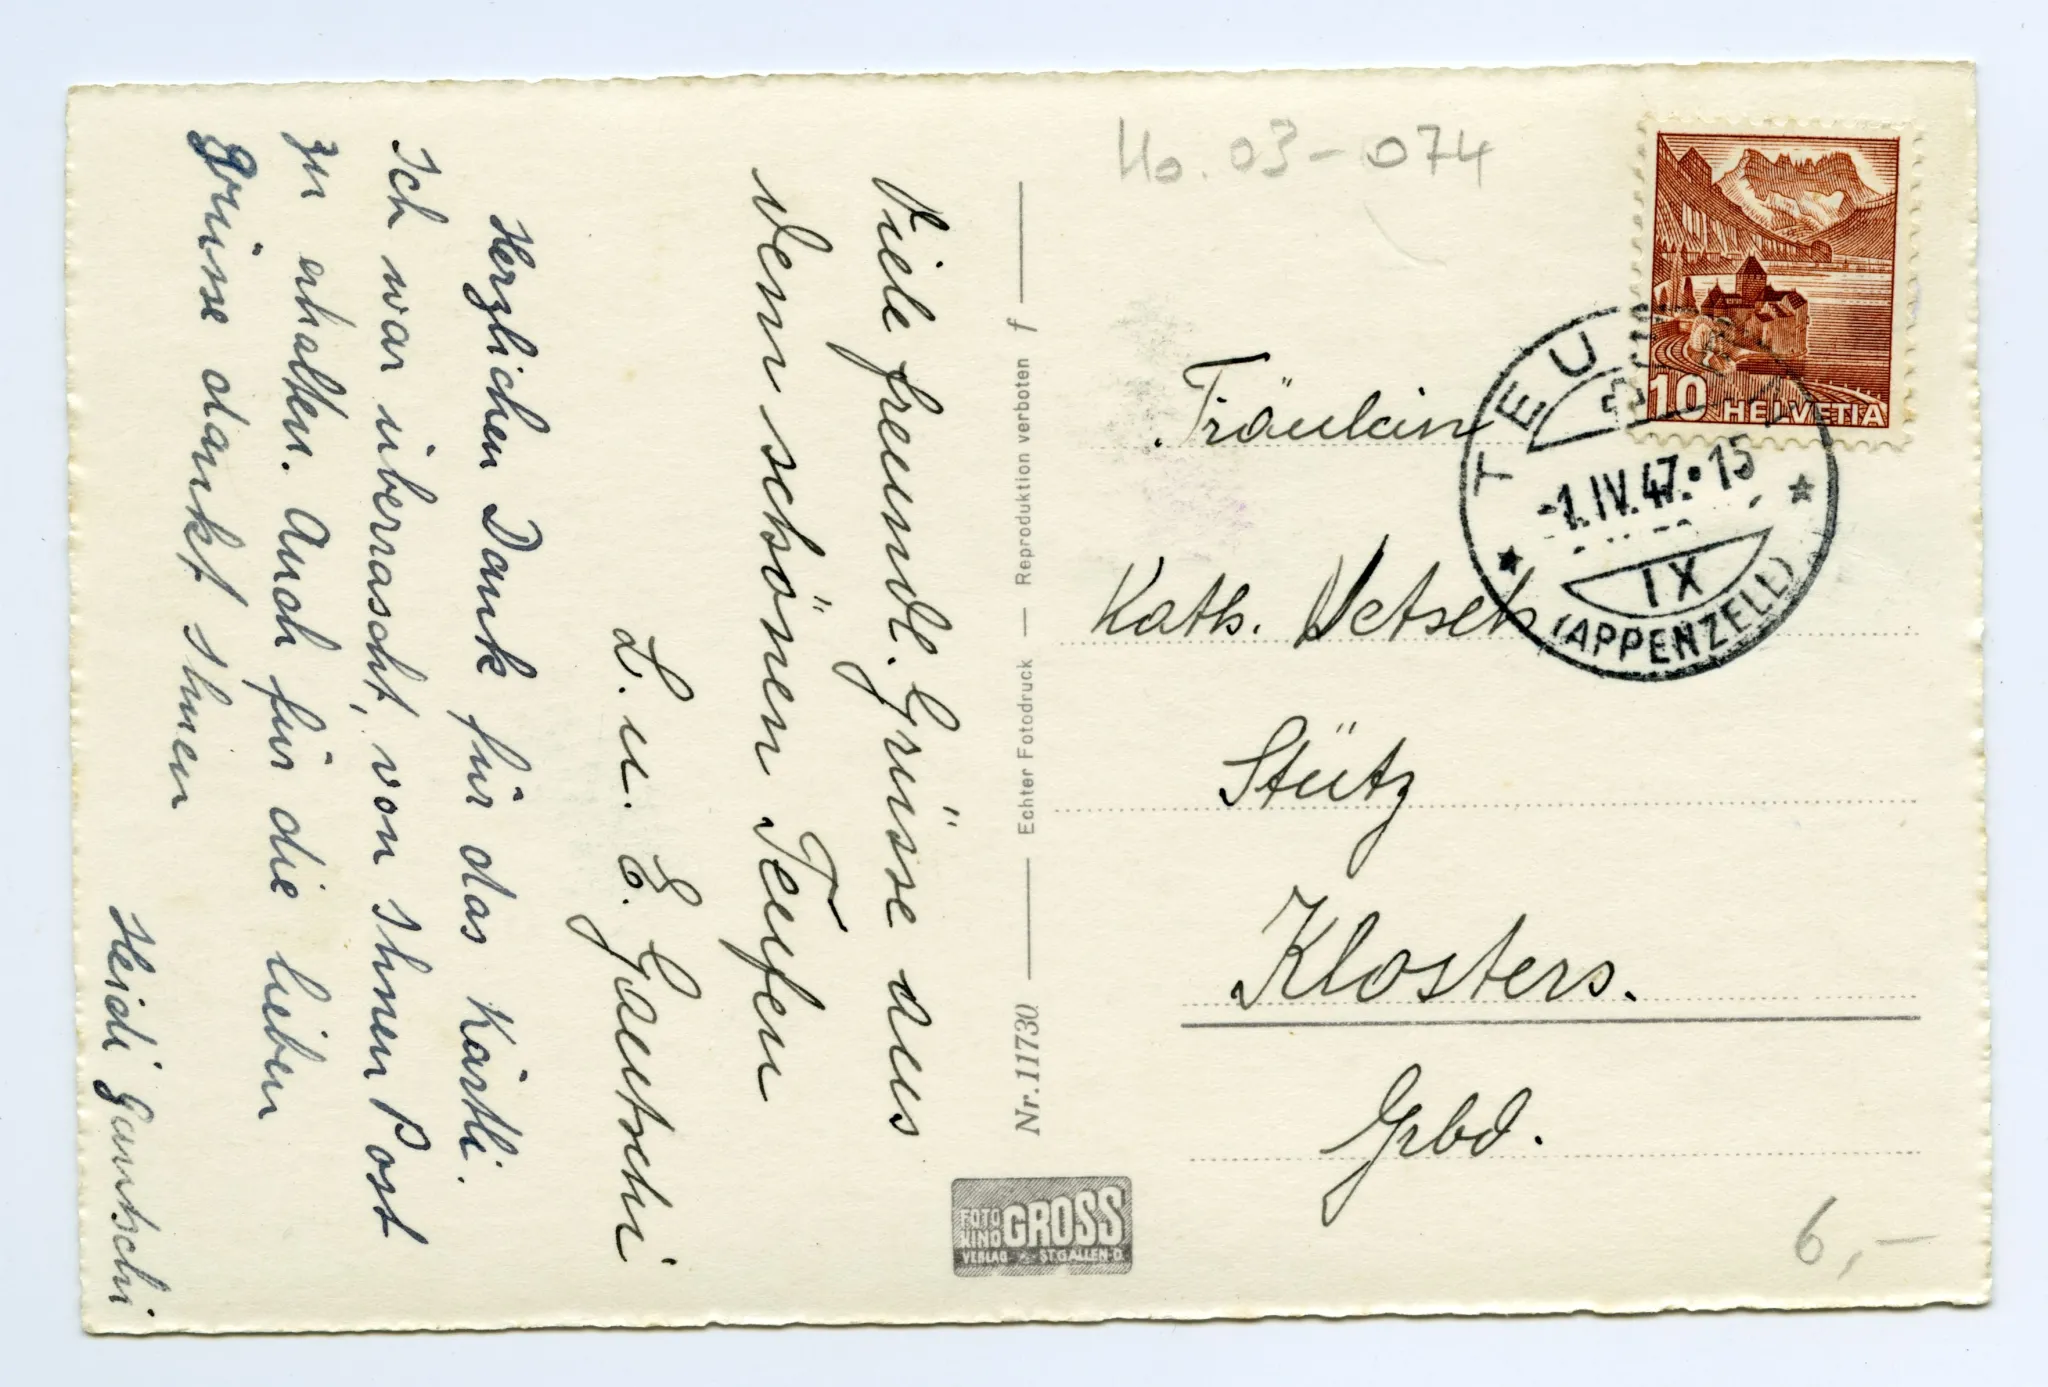 Viele freundl. Grüsse aus
dem schönen Teufen
L. u. E. Gautschi
Herzlichen Dank für das Kärtli.
Ich war überrascht, von Ihnen Post
zu erhalten. Auch für die lieben
Grüsse dankt Ihnen
Heidi Gautschi
Nr. 11730 Echter Fotodruck — Reproduktion verboten f
FOTO KINO GROSS
VERLAG ST.GALLEN-O.
No. 03-074
10 HELVETIA
TEUFEN
-1.IV.47.•15
IX
(APPENZELL)
Fräulein
Kath. Vetsch
Stütz
Klosters.
Grbd.
6,-